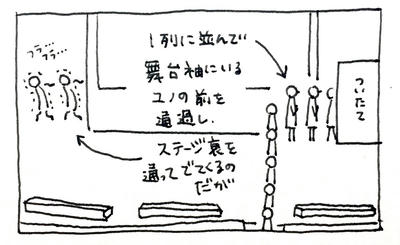 1列に並んで
舞台袖にいる
ユノの前を
通過し、
ステージ裏を
通ってでてくるの
だが
フラ…
フラ…
ついたて